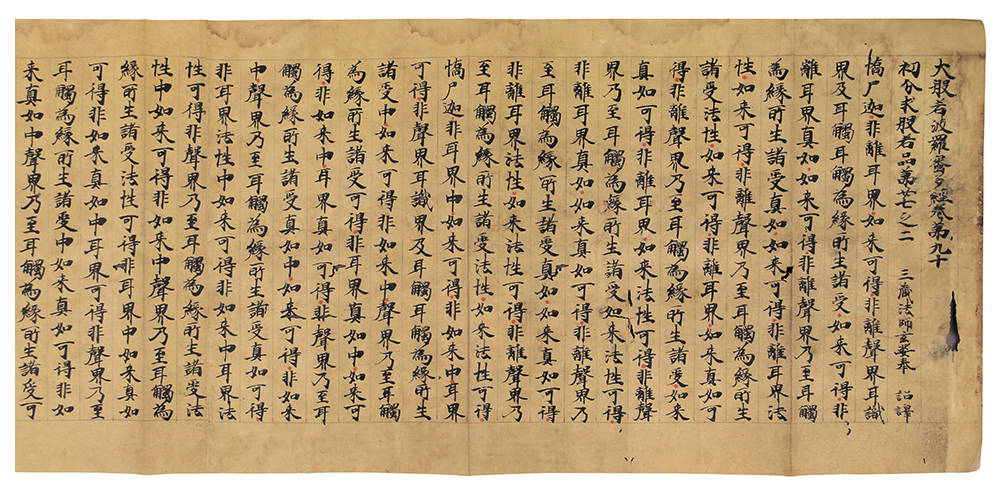 大般若波羅蜜多經卷第九十
初分求般若品第廿七之二 三藏法師玄奘奉 詔譯
憍尸迦非離耳界如来可得非離聲界耳識
界及耳觸耳觸為緣所生諸受如来可得非
離耳界真如如来可得非離聲界乃至耳觸
為緣所生諸受真如如来可得非離耳界法
性如来可得非離聲界乃至耳觸為緣所生
諸受法性如来可得非離耳界如来真如可
得非離聲界乃至耳觸為緣所生諸受如来
真如可得非離耳界如来法性可得非離聲
界乃至耳觸為緣所生諸受如来法性可得
非離耳界真如如来真如可得非離聲界乃
至耳觸為緣所生諸受真如如来真如可得
非離耳界法性如来法性可得非離聲界乃
至耳觸為緣所生諸受法性如来法性可得
憍尸迦非耳界中如来可得非如来中耳界
可得非聲界耳識界及耳觸耳觸為緣所生
諸受中如来可得非如来中聲界乃至耳觸
為緣所生諸受可得非耳界真如中如来可
得非如来中耳界真如可得非聲界乃至耳
觸為緣所生諸受真如中如来可得非如来
中聲界乃至耳觸為緣所生諸受真如可得
非耳界法性中如来可得非如来中耳界法
性可得非聲界乃至耳觸為緣所生諸受法
性中如来可得非如来中聲界乃至耳觸為
緣所生諸受法性可得非耳界中如来真如
可得非如来真如中耳界可得非聲界乃至
耳觸為緣所生諸受中如来真如可得非如
来真如中聲界乃至耳觸為緣所生諸受可